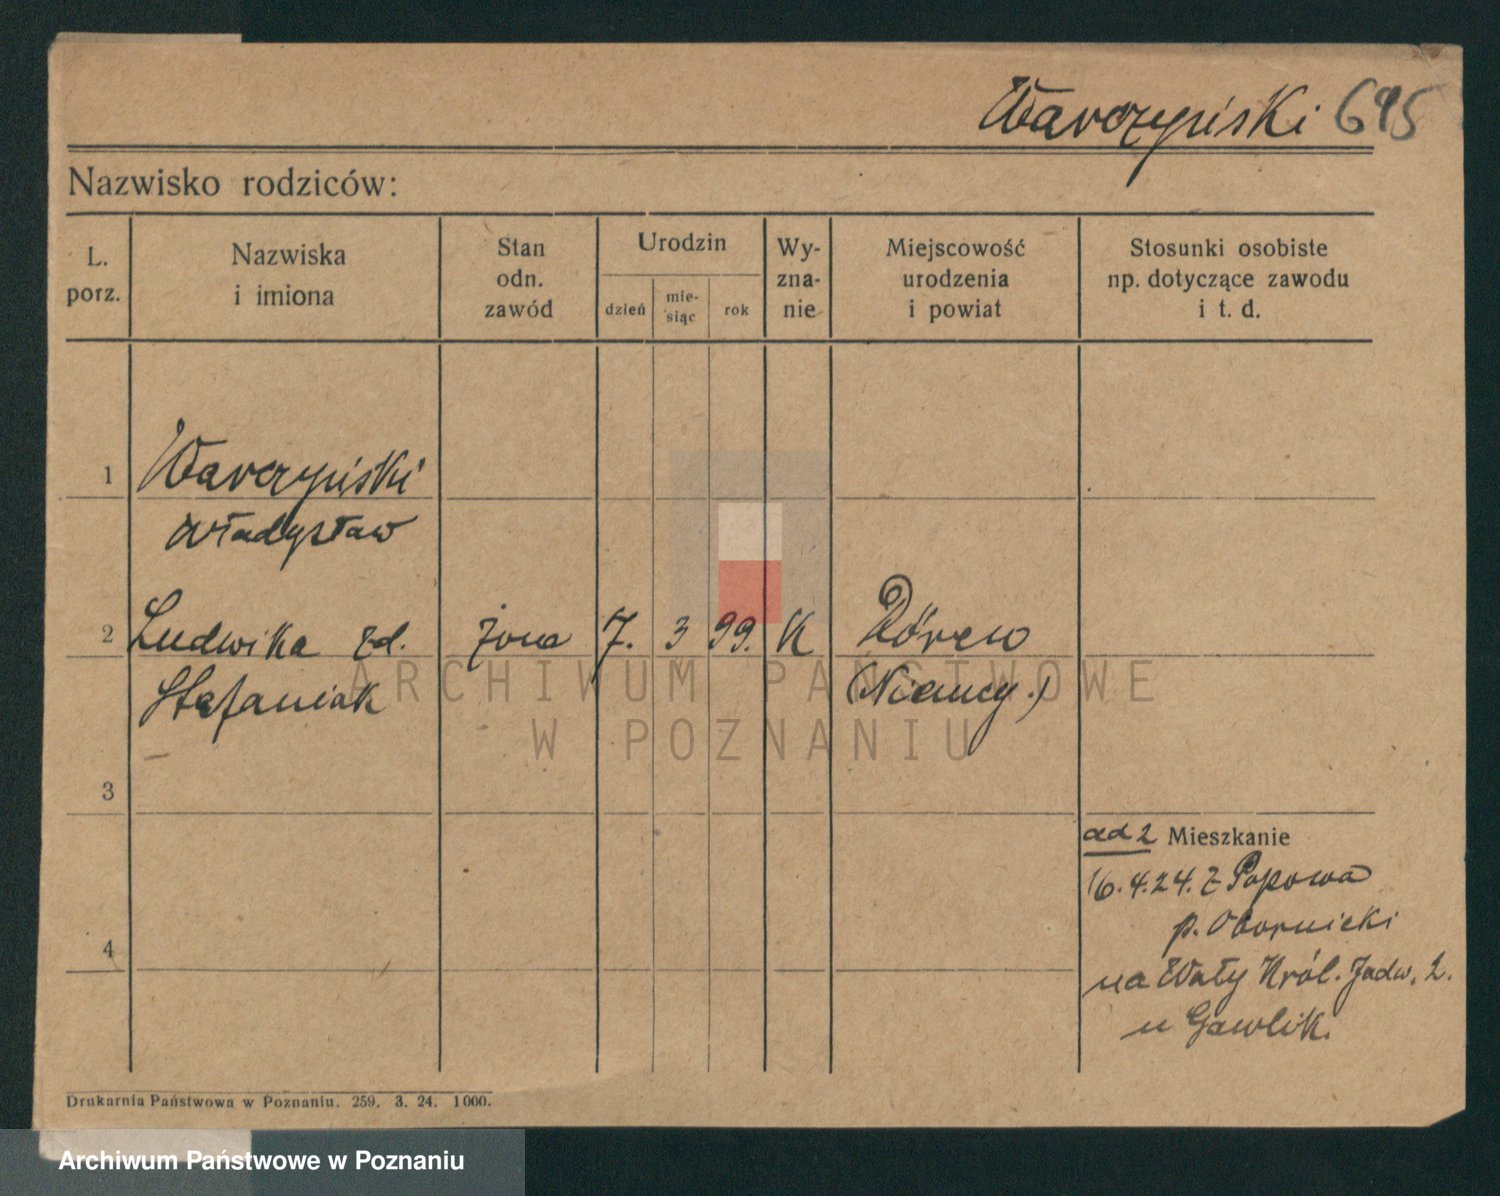 Warczyński 695
Nazwisko rodziców:
L. porz.
Nazwiska i imiona
Stan odn. zawód
Urodzin
dzień
mie-
siąc
rok
Wy-
zna-
nie
Miejscowość urodzenia i powiat
Stosunki osobiste np. dotyczące zawodu i t. d.
1 Warczyński
Władysław
2 Ludwika zd. żona 7. 3 99. K
Stefaniak (Niemcy.)
3
4
ad 2 Mieszkanie
16.4.24. z Popowa
p. Obornicki
na Wały Król. Jadw. 2.
u Gawlik.
Drukarnia Państwowa w Poznaniu. 259. 3. 24. 1000.
ARCHIWUM PAŃSTWOWE
W POZNANIU
Archiwum Państwowe w Poznaniu